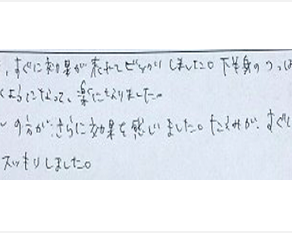 、すぐに効果が表れてビックリしました。下半身のつっぱ
くようになって、楽になりました。
の方が、さらに効果を感じました。たるみが、すぐに
スッキリしました。